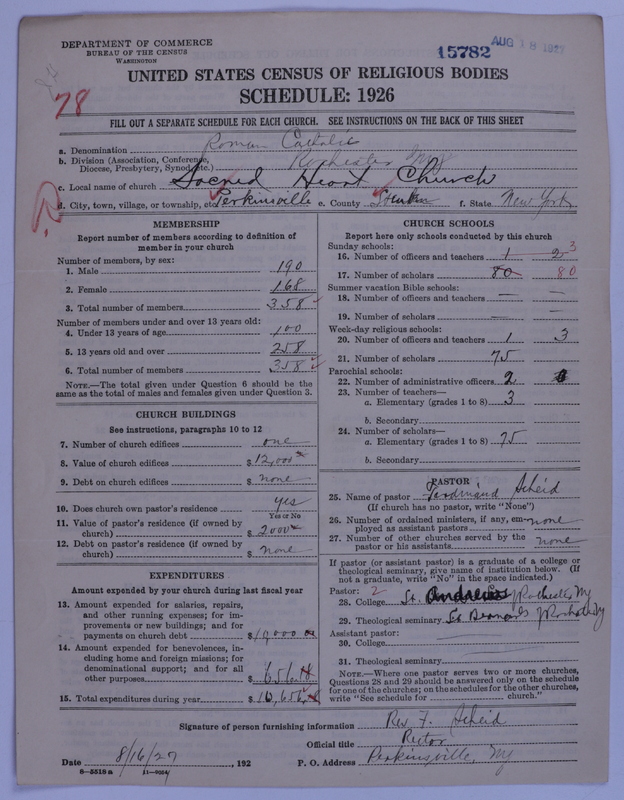 DEPARTMENT OF COMMERCE
BUREAU OF THE CENSUS
WASHINGTON
15782
AUG 18 1927
78
UNITED STATES CENSUS OF RELIGIOUS BODIES
SCHEDULE: 1926
FILL OUT A SEPARATE SCHEDULE FOR EACH CHURCH. SEE INSTRUCTIONS ON THE BACK OF THIS SHEET
a. Denomination Roman Catholic
b. Division (Association, Conference, Diocese, Presbytery, Synod, etc.) Rochester N.Y.
c. Local name of church Sacred Heart Church
d. City, town, village, or township, etc. Perkinsville e. County Steuben f. State New York
MEMBERSHIP
Report number of members according to definition of
member in your church
Number of members, by sex:
1. Male 190
2. Female 168
3. Total number of members 358
Number of members under and over 13 years old:
4. Under 13 years of age 100
5. 13 years old and over 258
6. Total number of members 358
NOTE.—The total given under Question 6 should be
same as the total of males and females given under Question 3.
CHURCH BUILDINGS
See instructions, paragraphs 10 to 12
7. Number of church edifices one
8. Value of church edifices $ 12,000
9. Debt on church edifices $ none
10. Does church own pastor's residence yes
Yes or No
11. Value of pastor's residence (if owned by
church) $ 2000
12. Debt on pastor's residence (if owned by
church) $ none
EXPENDITURES
Amount expended by your church during last fiscal year
13. Amount expended for salaries, repairs,
and other running expenses; for im-
provements or new buildings; and for
payments on church debt $ 10,000
14. Amount expended for benevolences, in-
cluding home and foreign missions; for
denominational support; and for all
other purposes $ 656
15. Total expenditures during year $ 10,656
CHURCH SCHOOLS
Report here only schools conducted by this church
Sunday schools:
16. Number of officers and teachers 1 2 3
17. Number of scholars 80 80
Summer vacation Bible schools:
18. Number of officers and teachers — —
19. Number of scholars — —
Week-day religious schools:
20. Number of officers and teachers 1 3
21. Number of scholars 75
Parochial schools:
22. Number of administrative officers 2
23. Number of teachers—
a. Elementary (grades 1 to 8) 3
b. Secondary
24. Number of scholars—
a. Elementary (grades 1 to 8) 75
b. Secondary
PASTOR
25. Name of pastor Ferdinand Scheid
(If church has no pastor, write "None")
26. Number of ordained ministers, if any, em-
ployed as assistant pastors none
27. Number of other churches served by the
pastor or his assistants none
If pastor (or assistant pastor) is a graduate of a college or
theological seminary, give name of institution below. (If
not a graduate, write "No" in the space indicated.)
Pastor: 2
28. College St. Andrews Rochester NY
29. Theological seminary St Bernards Rochester NY
Assistant pastor:
30. College
31. Theological seminary
NOTE.—Where one pastor serves two or more churches,
Questions 28 and 29 should be answered only on the schedule
for one of the churches; on the schedules for the other churches,
write "See schedule for church."
Signature of person furnishing information Rev. F. Scheid
Official title Rector
Date 8/16/27, 192 P. O. Address Perkinsville, NY
8-5518a 11-9034